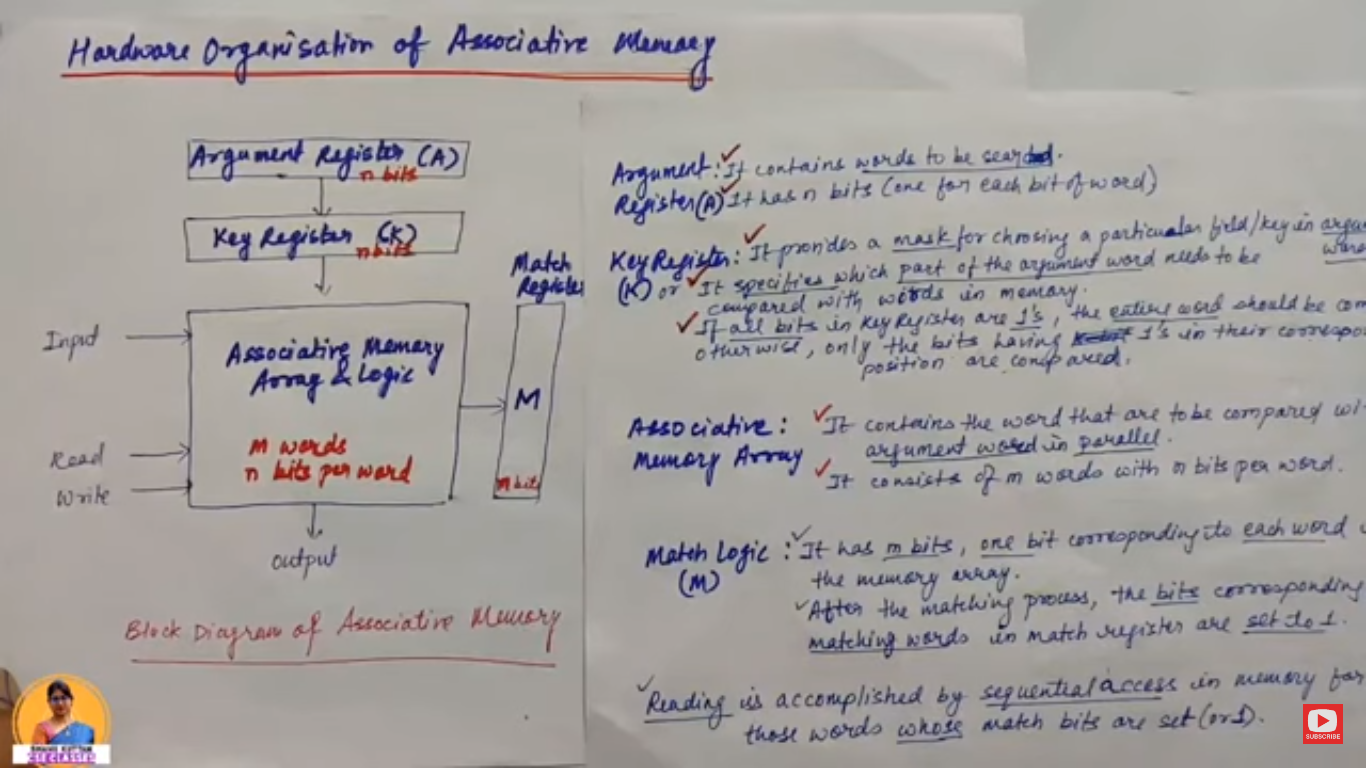 Hardware Organisation of Associative Memory
Argument Register (A)
n bits
Key Register (K)
n bits
Match
Register
Input
Associative Memory
Array & Logic
M
m words
n bits per word
Read
Write
m bits
output
Block Diagram of Associative Memory
Argument: It contains words to be
Register(A) It has n bits (one for each bit of word)
Key Register: It provides a mask for choosing a particular field/key in
(K) or It specifies which part of the argument word needs to be
compared with words in memory.
If all bits in Key Register are 1's, the entire word should be
otherwise, only the bits having 1's in their
position are compared.
Associative: It contains the word that are to be compared
Memory Array argument word in parallel.
It consists of m words with n bits per word.
Match Logic: It has m bits, one bit corresponding to each word
(M) the memory array.
After the matching process, the bits corresponding
matching words in match register are set to 1.
Reading is accomplished by sequential access in memory for
those words whose match bits are set (or 1).
CSE CLASSES
SUBSCRIBE